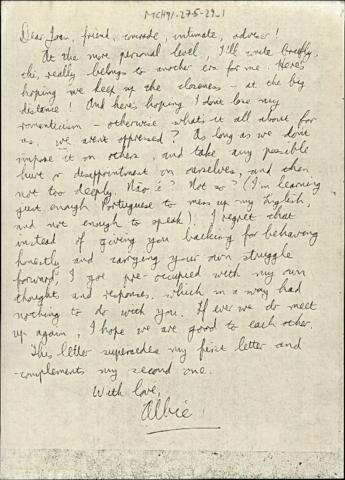 MCH91-27-5-29-1
Dear Joan, friend, comrade, intimate, adviser!
At the more personal level, I'll write briefly,
the, really belongs to another era for me. Here's
hoping we keep up the closeness - at the big
distance! And here's hoping I don't lose my
romanticism - otherwise what's it all about for
us, we aren't oppressed? As long as we don't
impose it on others, and take any possible
hurt or disappointment on ourselves, and then
not too deeply. Não é? Not so? (I'm learning
just enough Portuguese to mess up my English,
and not enough to speak). I regret that
instead of giving you backing for behaving
honestly and carrying your own struggle
forward, I got pre-occupied with my own
thought and responses, which in a way had
nothing to do with you. If ever we do meet
up again, I hope we are good to each other.
This letter supersedes my first letter and
complements my second one.
With love,
Albie